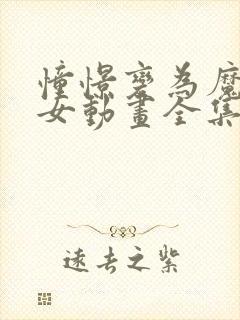 憧憬變為魔
女動畫全集
遠去之紫